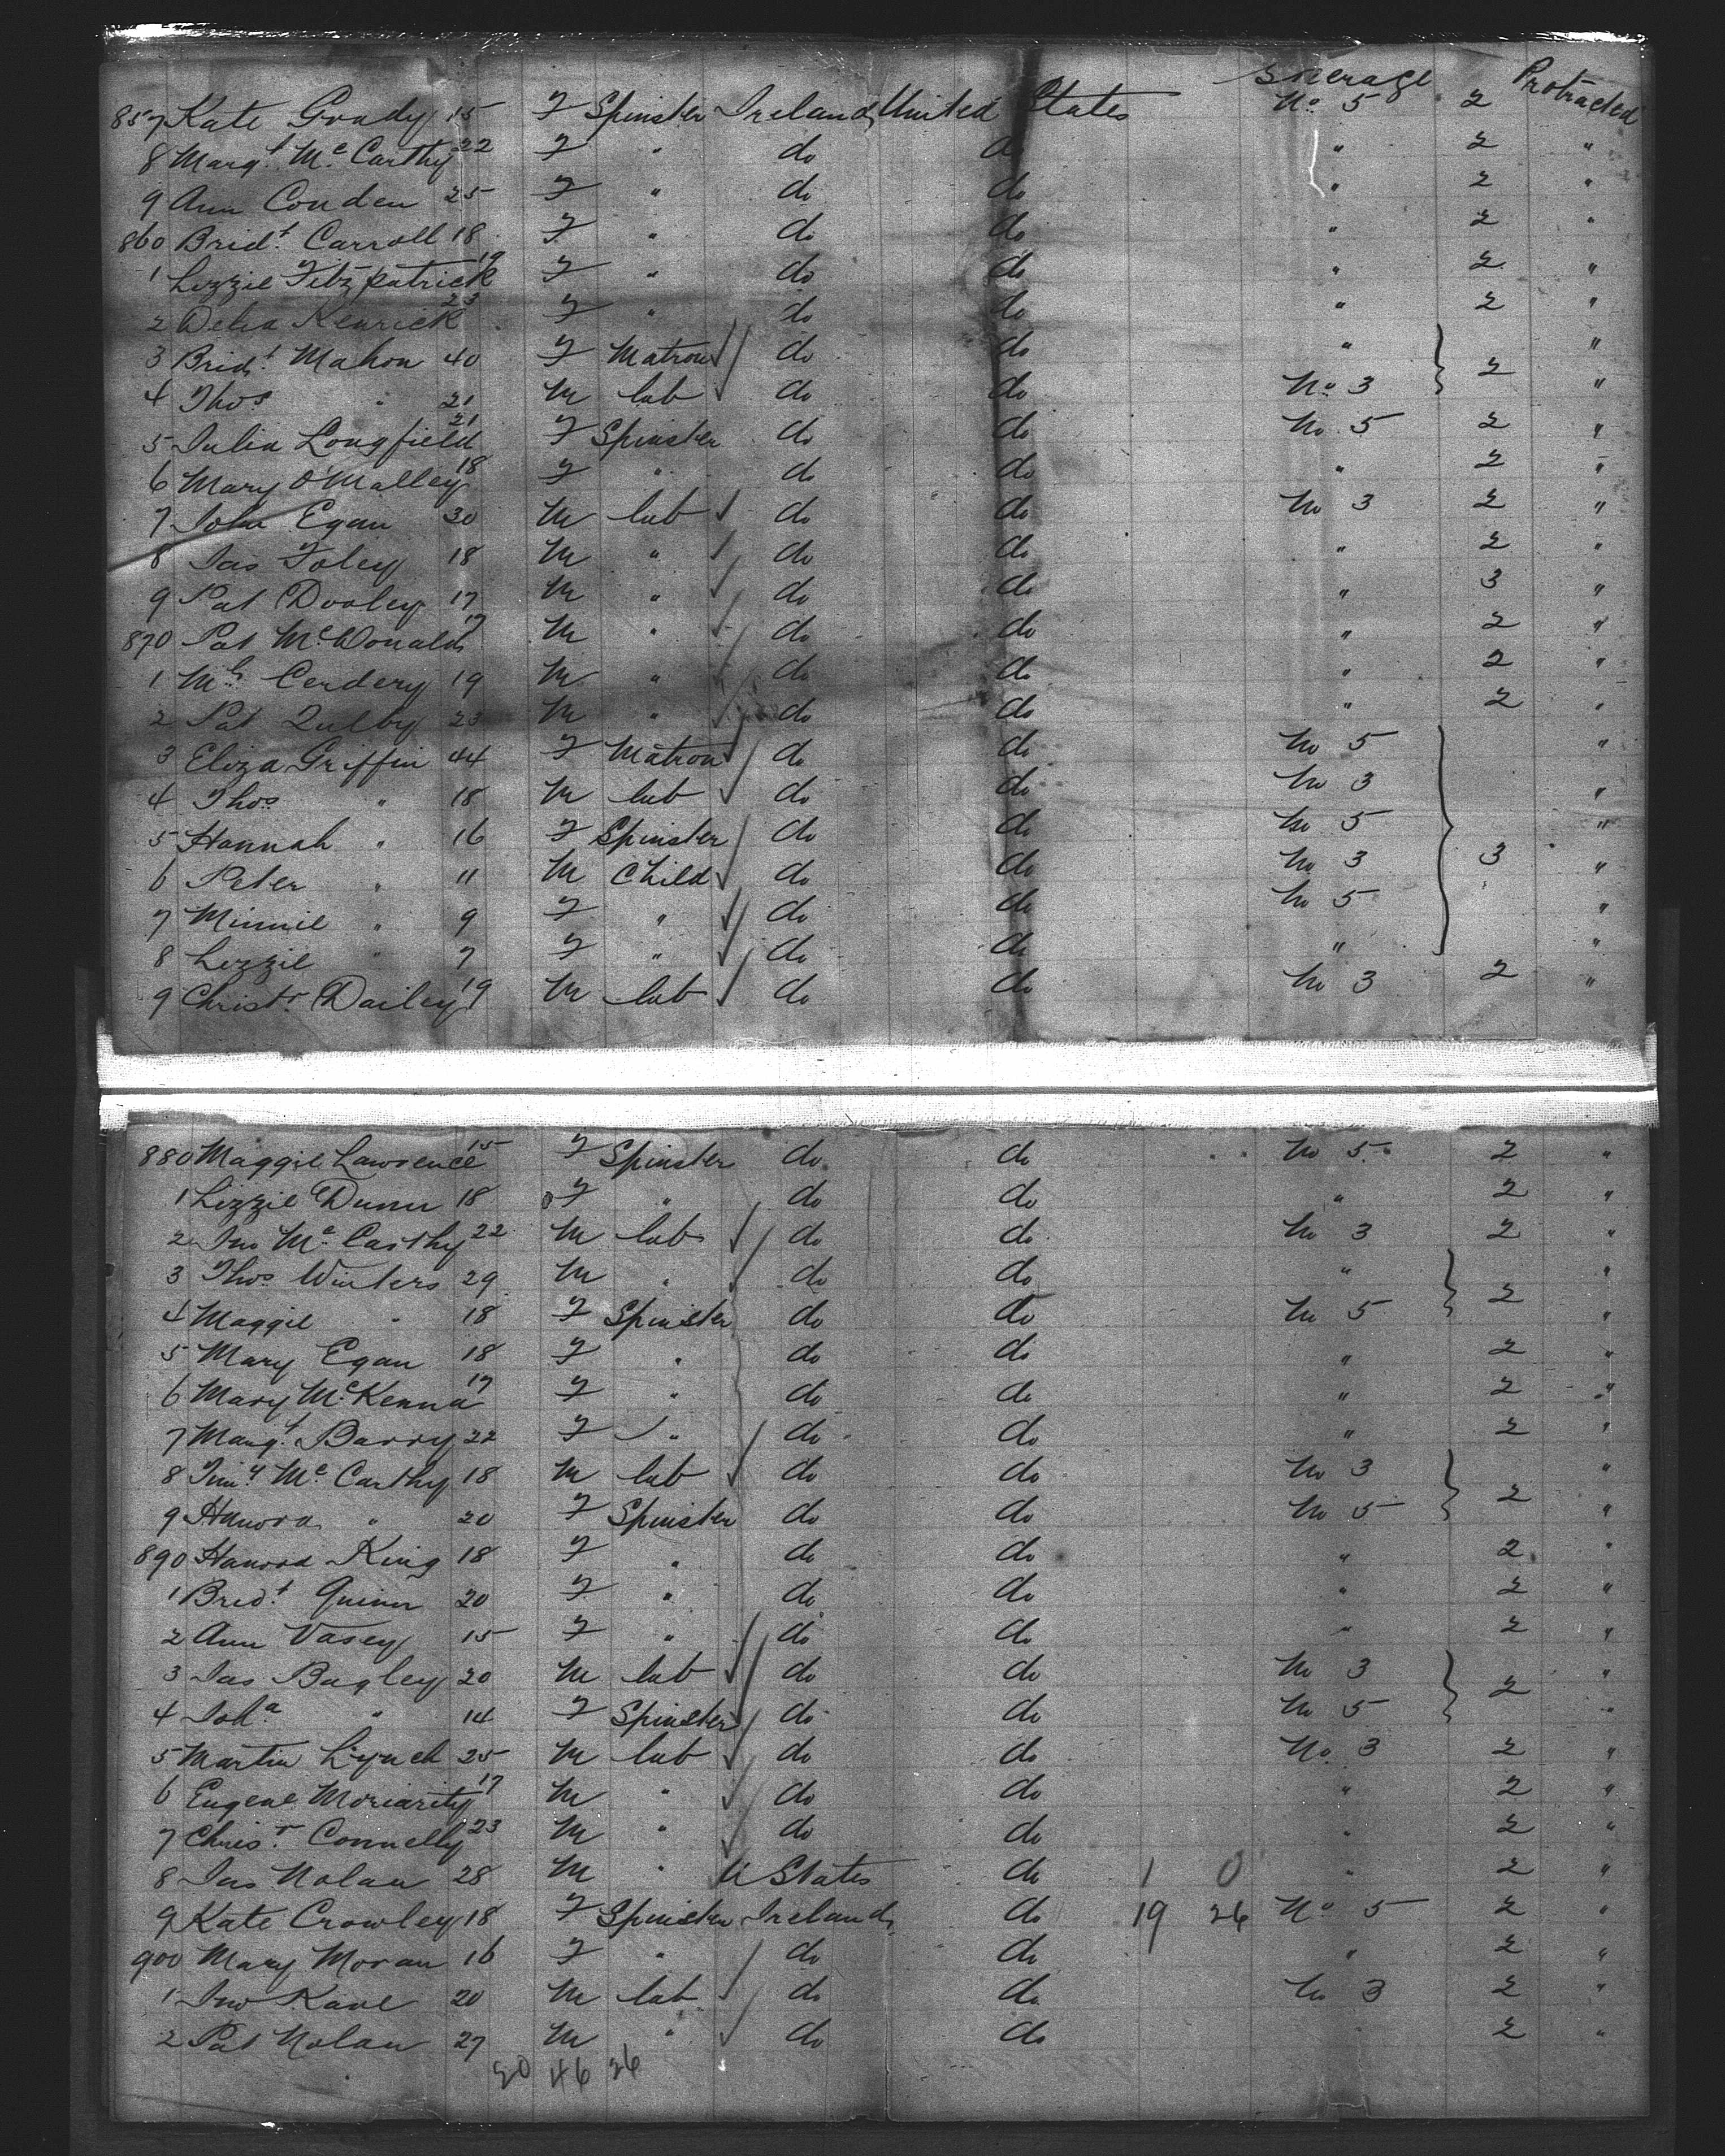 Steerage Protracted
857 Kate Grady 15 F Spinster Ireland United States No 5 2
8 Margt McCarthy 22 F " do do " 2 "
9 Ann Conden 25 F " do do " 2 "
860 Bridt Carroll 18 F " do do " 2 "
1 Lizzie Fitzpatrick 19 F " do do " 2 "
2 Delia Kenrick 23 F " do do " 2 "
3 Bridt Mahon 40 F Matron do do " "
4 Thos " 21 M lab do do No 3 2 "
5 Julia Longfield 21 F Spinster do do No 5 2 "
6 Mary O'Malley 18 F " do do " 2 "
7 John Egan 30 M lab do do No 3 2 "
8 Jas Foley 18 M " do do " 2 "
9 Pat Dooley 17 M " do do " 3 "
870 Pat McDonald 17 M " do do " 2 "
1 Ml Cerdery 19 M " do do " 2 "
2 Pat Quilby 23 M " do do " 2 "
3 Eliza Griffin 44 F Matron do do No 5 "
4 Thos " 18 M lab do do No 3 "
5 Hannah " 16 F Spinster do do No 5 "
6 Peter " 11 M Child do do No 3 3 "
7 Minnie " 9 F " do do No 5 "
8 Lizzie " 7 F " do do " "
9 Christr Dailey 19 M lab do do No 3 2 "
880 Maggie Lawrence 15 F Spinster do do No 5 2 "
1 Lizzie Dunn 18 F " do do " 2 "
2 Jno McCarthy 22 M lab do do No 3 2 "
3 Thos Winters 29 M " do do " "
4 Maggie " 18 F Spinster do do No 5 2 "
5 Mary Egan 18 F " do do " 2 "
6 Mary McKenna 17 F " do do " 2 "
7 Margt Barry 22 F " do do " 2 "
8 Timy McCarthy 18 M lab do do No 3 "
9 Hanora " 20 F Spinster do do No 5 2 "
890 Hanora King 18 F " do do " 2 "
1 Bridt Quinn 20 F " do do " 2 "
2 Ann Vasey 15 F " do do " 2 "
3 Jas Bagley 20 M lab do do No 3 "
4 Joha " 14 F Spinster do do No 5 2 "
5 Martin Lynch 25 M lab do do No 3 2 "
6 Eugene Moriarity 17 M " do do " 2 "
7 Chrisr Connelly 23 M " do do " 2 "
8 Jas Nolan 28 M " U States do 1 0 " 2 "
9 Kate Crowley 18 F Spinster Ireland do 19 26 No 5 2 "
900 Mary Moran 16 F " do do " 2 "
1 Jno Kane 20 M lab do do No 3 2 "
2 Pat Nolan 27 M " do do 2 "
20 46 26